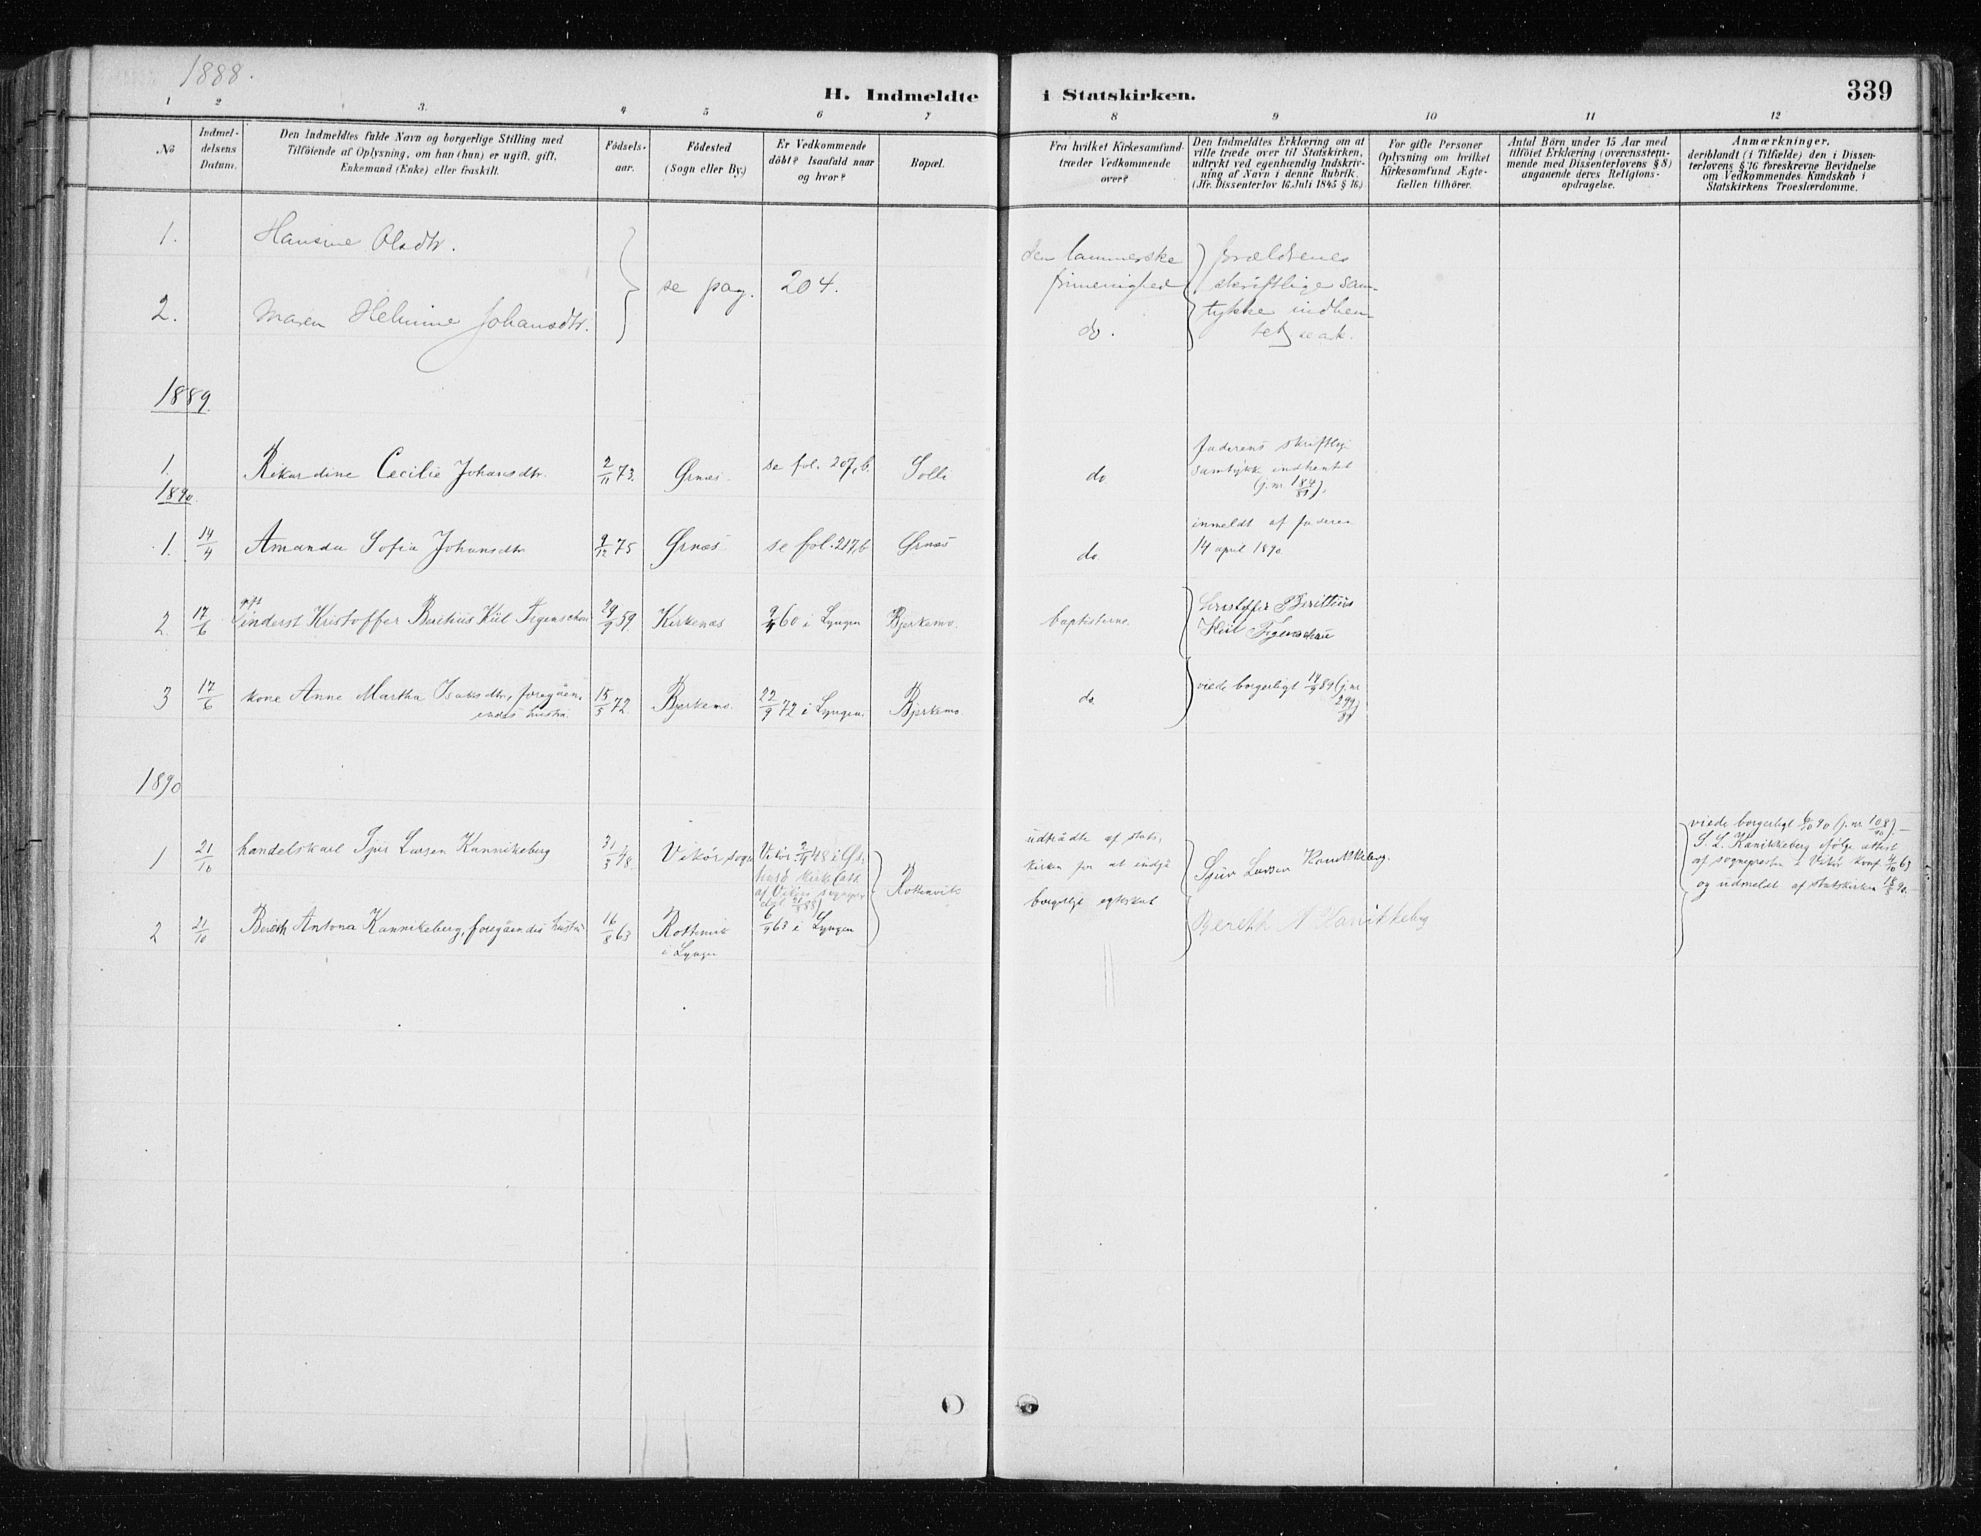 1888.
H. Indmeldte i Statskirken.
339
1 2 3. 4 5 6 7 8 9 10 11 12
No
Indmeldelsens Datum.
Den Indmeldtes fulde Navn og borgerlige Stilling med
Tilföiende af Oplysning, om han (hun) er ugift, gift,
Enkemand (Enke) eller fraskilt.
Födsels-
aar.
Födested
(Sogn eller By.)
Er Vedkommende
döbt? Isaafald naar
og hvor?
Bopæl.
Fra hvilket Kirkesamfund
træder Vedkommende
over?
Den Indmeldtes Erklæring om at
ville træde over til Statskirken,
udtrykt ved egenhændig Indskriv-
ning af Navn i denne Rubrik.
(Jfr. Dissenterlov 16 Juli 1845 § 16.)
For gifte Personer
Oplysning om hvilket
Kirkesamfund Ægte-
fællen tilhörer.
Antal Börn under 15 Aar med
tilföiet Erklæring (overensstem-
mende med Dissenterlovens § 8)
angaaende deres Religions-
opdragelse.
Anmærkninger.
deriblandt (i Tilfælde) den i Dissen-
terlovens § 16 foreskrevne Bevidnelse
om Vedkommendes Kundskab i
Statskirkens Troeslærdomme.
1. Hansine Olsdtr.
se pag. 204.
den lammerske
frimenighed
forældrenes
skriftlige sam-
tykke indhen-
tet
2. Maren Helmine Johansdtr.
do.
1889.
1. Rikardine Cecilie Johansdtr. 2/11 73. Ørnæs. se fol. 207,b. Solli do.
faderens skriftlig
samtykk indhentet
(j.nr. 184/89).
1890.
1. 14/4 Amanda Sofia Johansdtr. 9/12 75 Ørnæs se fol. 217,b Ørnæs do.
inmeldt af faderen
14 april 1890.
gift
2. 17/6 inderst Kristoffer Beritius Kiil Figenschau 29/9 59. Kirkenæs 60 i Lyngen Bjerkemo. baptisterne.
Kristoffer Berithius
Kiil Figenschau
3 17/6 kone Anne Martha Isaksdtr, foregåen-
endes hustru 15/5 72. Bjerkemo. 22/9 72 i Lyngen. Bjerkemo. do.
viede borgerligt 14/9 89 (j.nr.
299/89)
1890
1 21/10 handelskarl Sjur Larsen Kannikeberg 48. Vikør sogn
Rottenvik
udtrådte af stats-
kirken for at indgå
borgerligt egteskab
Sjur Larsen Kanikkeberg.
viede borgerligt 6/10 90 (j.nr. 108/90). –
S. L. Kanikkeberg ifølge attest
af sognepresten i Vikør konf. 4/10 63
og udmeldt af statskirken 18/8 90.
2 21/10 Bereth Antona Kannikeberg, foregåendes hustru 16/8 63 Rottenvik
i Lyngen
6/9 63 i Lyngen
Bereth A Kanikkeberg